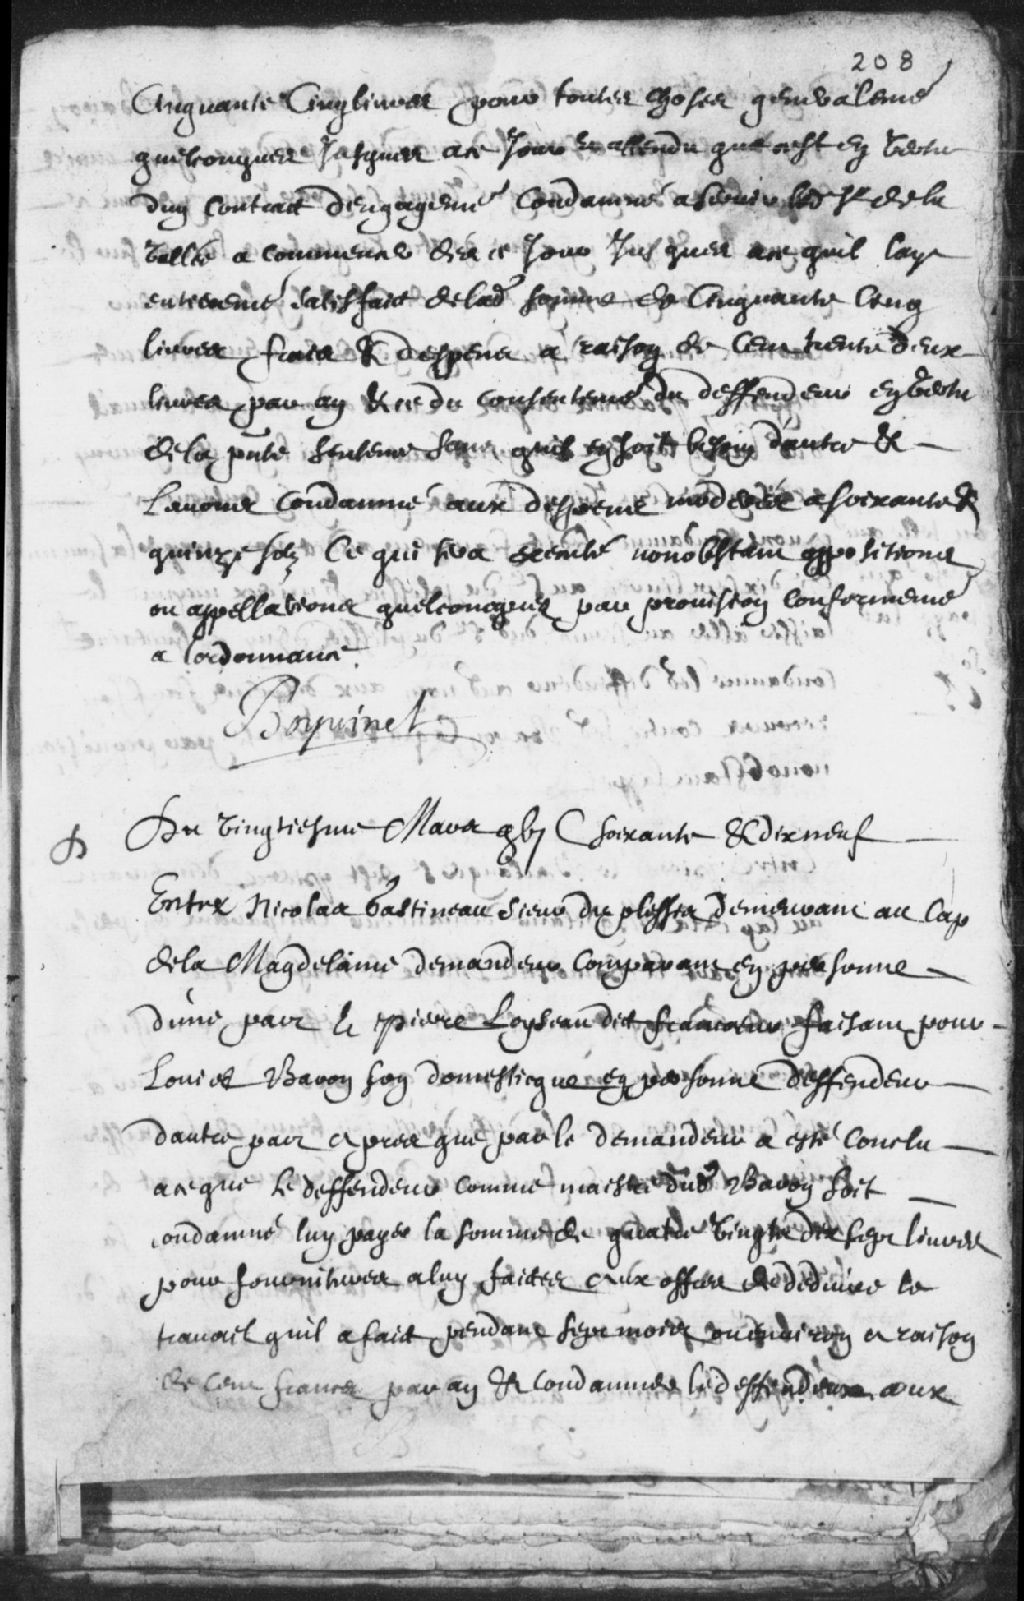 208
Cinquante Cinq livres pour toutes choses generalemt
quelconques Jusques a ce Jour et attendu que cest en vertu
dun contract dengagemt Condamné a servir led Sr de la
vallée a commencer des ce Jour Jusques a ce quil laye
entieremt satisfaict de lad somme de Cinquante Cinq
livres frais & despens a raison de Cent trente deux
livres par an & ce du consentemt du deffendeur en vertu
de la pnte sentence sans quil en soit besoin dautre &
Lavons condamné aux despens moderés a soixante &
quinze solz Ce qui sera executé nonobstant oppositions
ou appellations quelconques par provision conformemt
a lordonnance
Boyvinet
Du vingtiesme Mars gbj Soixante & dix neuf
Entre Nicolas Gastineau sieur du plessis demeurant au Cap
de la Magdelaine demandeur comparant en personne
dune part & pierre Loyseau dit francoeur faisant pour
Louis Baron son domesticque en personne deffendeur
dautre part apres que par le demandeur a esté Conclu
a ce que le deffendeur comme maistre dud Baron soit
condamné luy payer la somme de quatre vingts dix sept livres
pour fournitures a luy faictes aux offres de deduire le
travail quil a faict pendant sept mois ou environ a raison
de cent francs par an & condamner le deffendeur aux